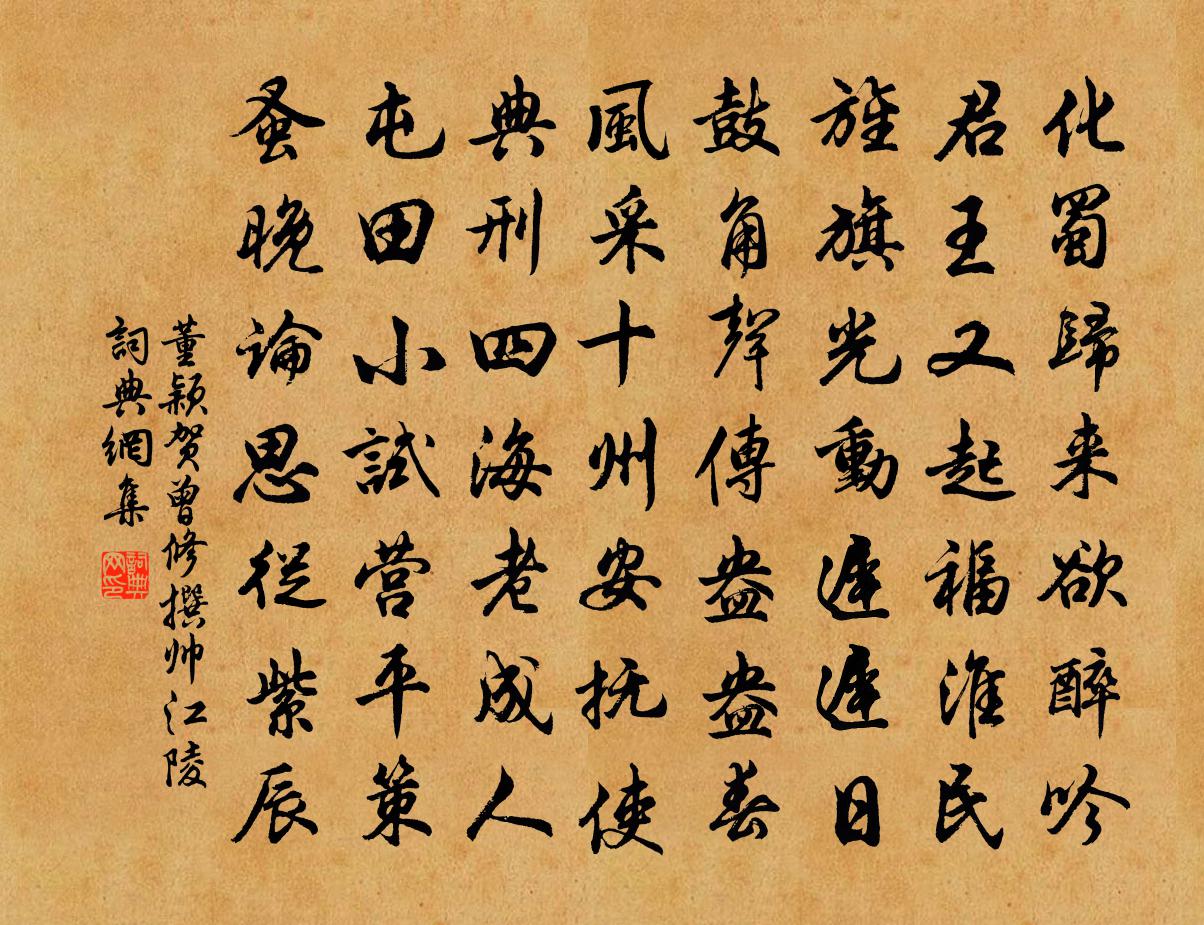 化蜀歸来欲醉吟
君王又起福淮民
旌旗光動遲遲日
鼓角聲傳盎盎春
風采十州安抚使
典刑四海老成人
屯田小試营平策
蚤晚論思從紫宸
董颖贺曾修撰帅江陵
詞典網集
詞典网印